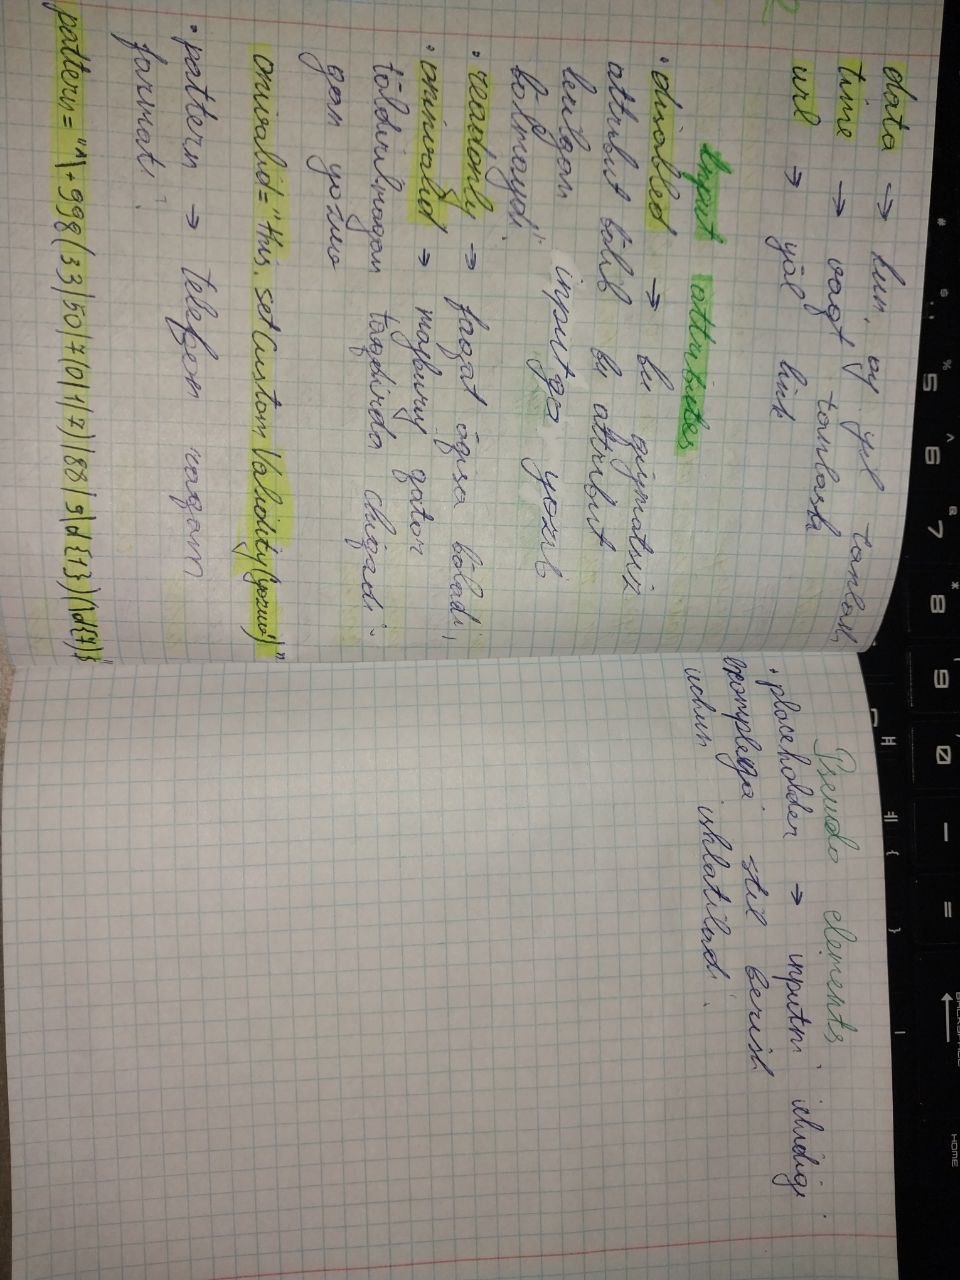 data → kun, oy yil tanlash,
time → vaqt tanlash
url → yól link
Input attributes
• disabled → bu qiymatsiz
attribut bólib bu attribut
berilgan inputga yozib
bólmaydi.
• readonly → faqat óqisa bóladi,
• oninvalid → majburiy qator
tóldirilmagan taqdirda chiqadi.
gan yozuv
oninvalid="this.setCustomValidity(yozuv)"
• pattern → telefon raqam
format.
pattern="^\+998(33|50|7(0|1|7)|88|9\d{1})(\d{7})"
Pseudo elements
• placeholder → inputni ichidigi
plompleega stil berish
uchun ishlatiladi.
#
$
%
5
^
6
&
7
*
8
(
9
)
0
-
=
{
}
H
BACKSPACE
HOME